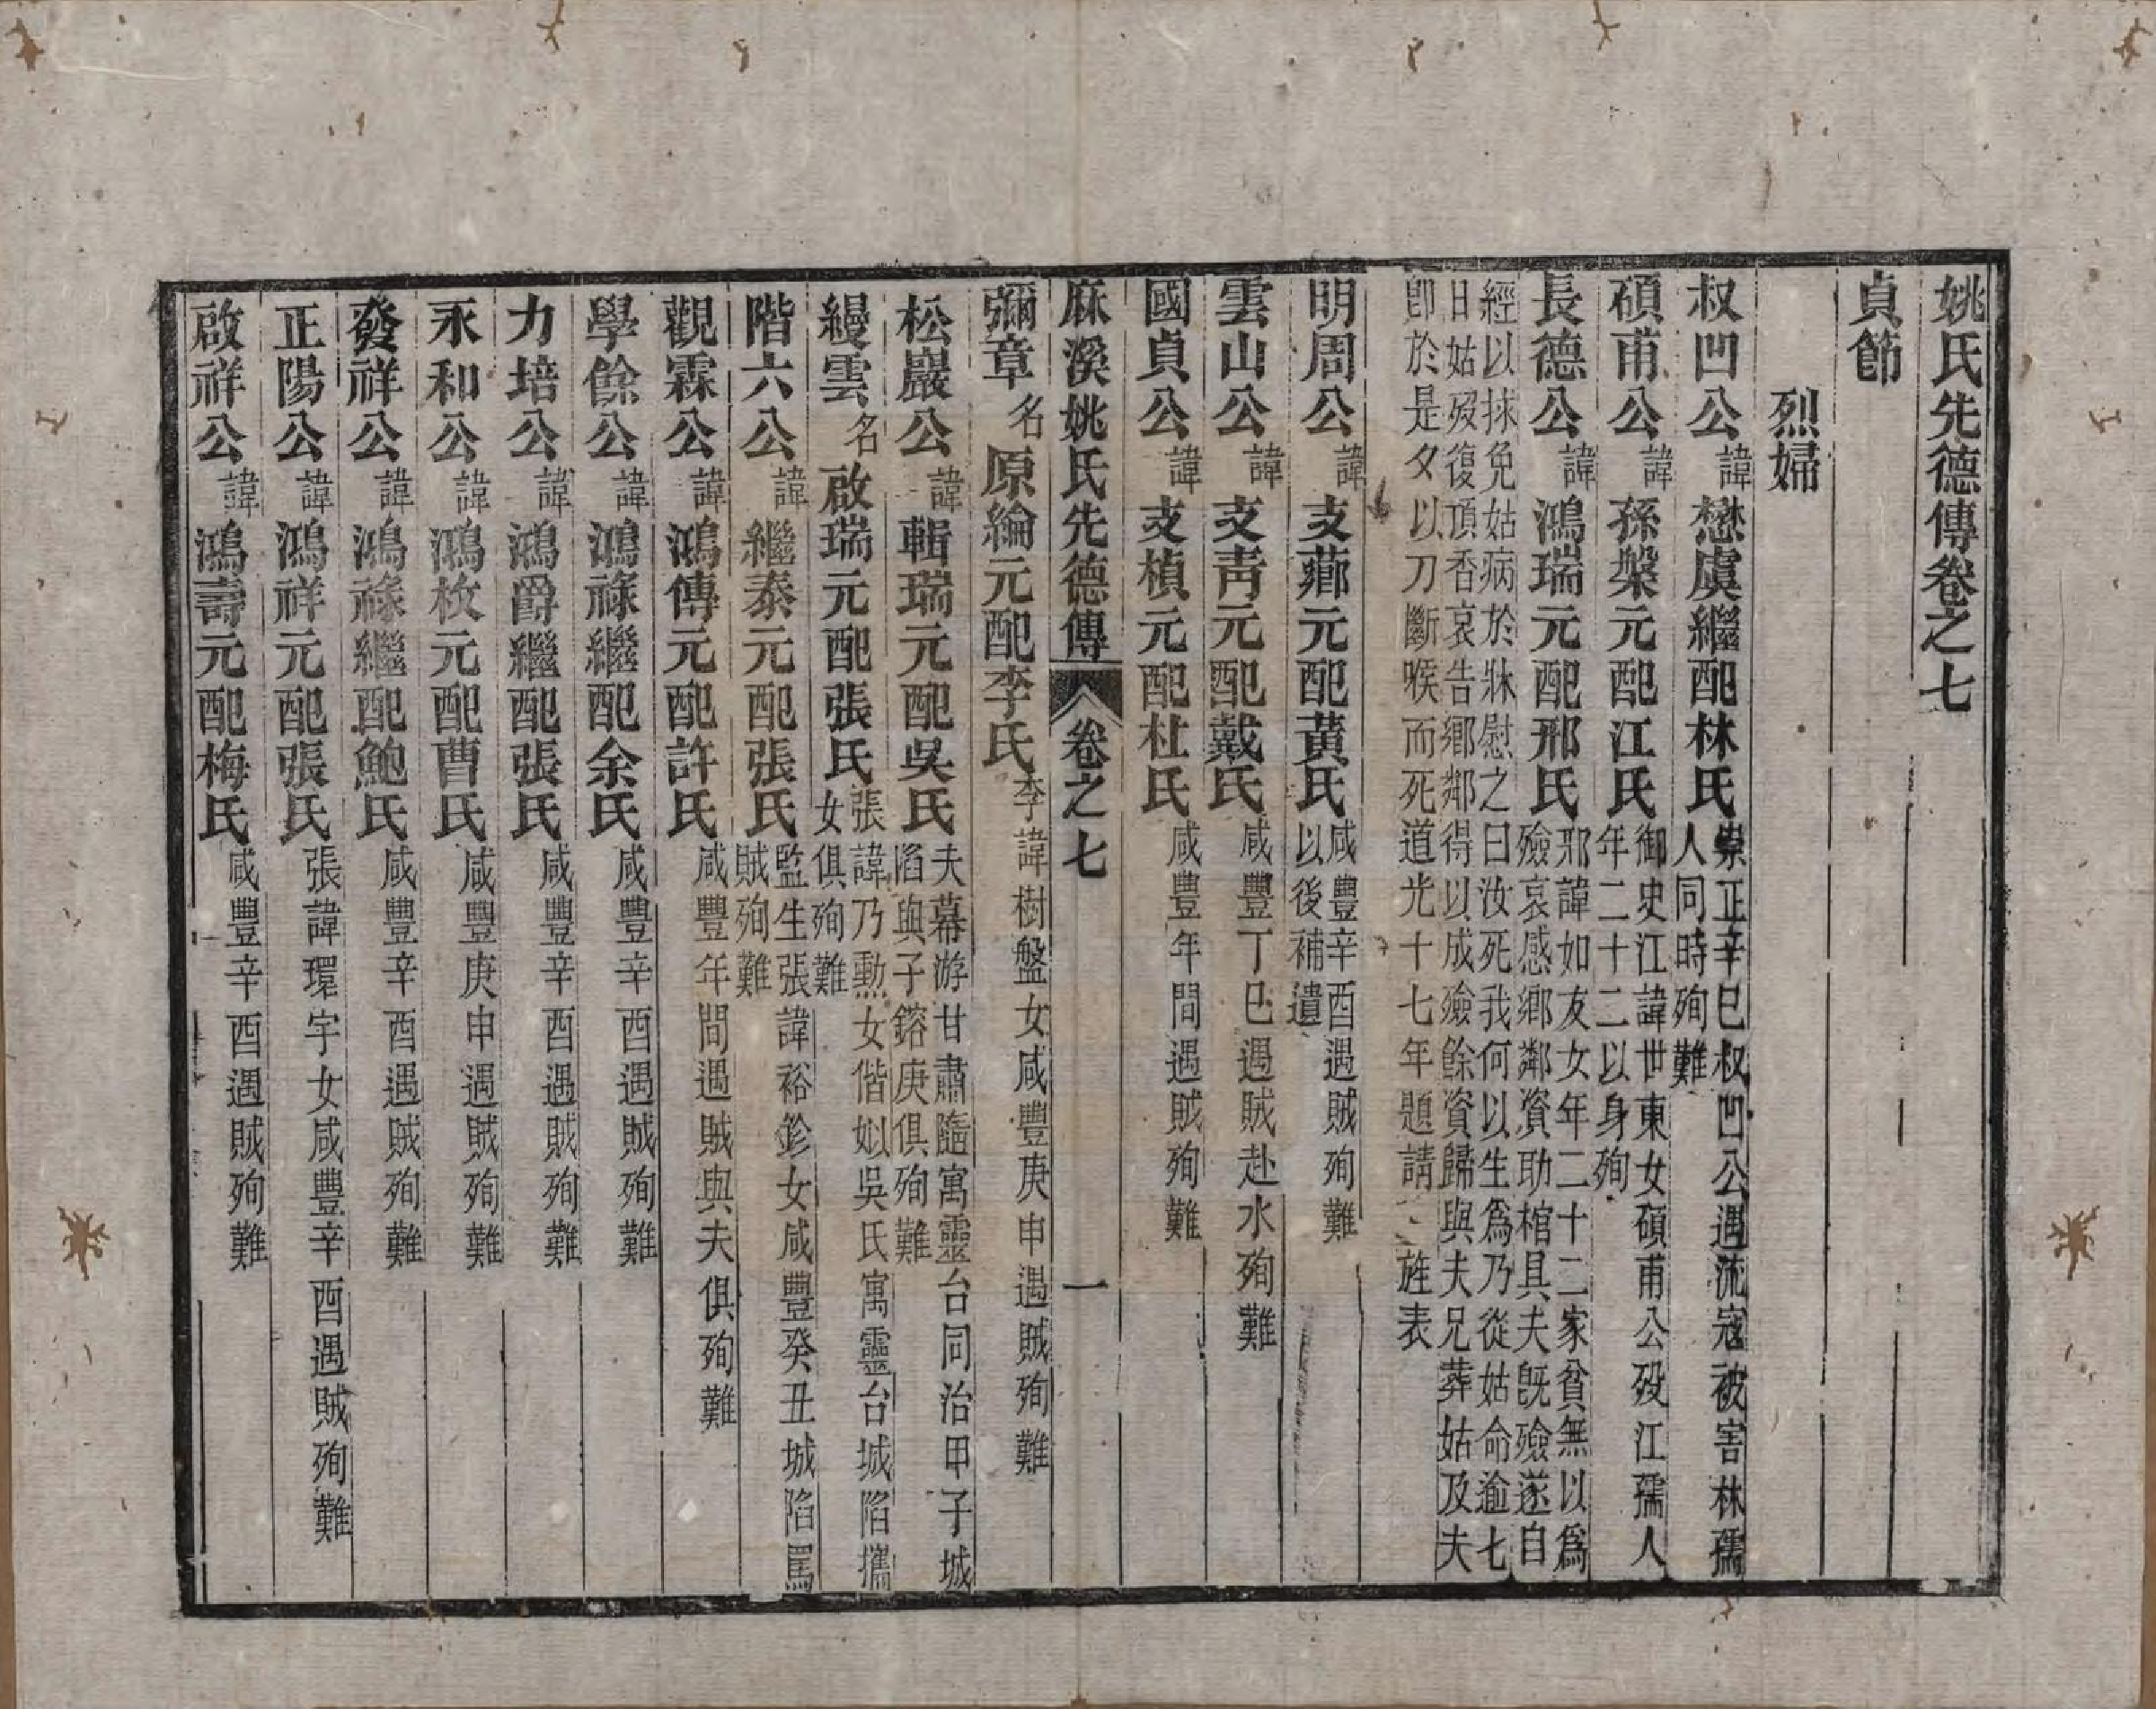 姚氏先德傳卷之七
貞節
烈婦
叔凹公諱懋虞繼配林氏崇正辛巳叔凹公遇流寇被害林孺
人同時殉難
碩甫公諱孫槃元配江氏御史江諱世東女碩甫公歿江孺人
年二十二以身殉
長德公諱鴻瑞元配邢氏邢諱如友女年二十二家貧無以爲
殮哀感鄉鄰資助棺具夫旣殮遂自
經以救免姑病於牀慰之曰汝死我何以生爲乃從姑命逾七
日姑歿復頂香哀告鄉鄰得以成殮餘資歸與夫兄葬姑及夫
卽於是夕以刀斷喉而死道光十七年題請旌表
明周公諱支薌元配黃氏咸豐辛酉遇賊殉難
以後補遺
雲山公諱支青元配戴氏咸豐丁巳遇賊赴水殉難
國貞公諱支楨元配杜氏咸豐年間遇賊殉難
麻溪姚氏先德傳 卷之七 一
彌章名原綸元配李氏李諱樹盤女咸豐庚申遇賊殉難
松巖公諱輯瑞元配吳氏夫幕游甘肅隨寓靈台同治甲子城
陷與子鎔庚俱殉難
縵雲名啟瑞元配張氏張諱乃勲女偕姒吳氏寓靈台城陷攜
女俱殉難
階六公諱繼泰元配張氏監生張諱裕鉁女咸豐癸丑城陷罵
賊殉難
觀霖公諱鴻傳元配許氏咸豐年間遇賊與夫俱殉難
學餘公諱鴻祿繼配余氏咸豐辛酉遇賊殉難
力培公諱鴻爵繼配張氏咸豐辛酉遇賊殉難
永和公諱鴻枚元配曹氏咸豐庚申遇賊殉難
發祥公諱鴻祿繼配鮑氏咸豐辛酉遇賊殉難
正陽公諱鴻祥元配張氏張諱環宇女咸豐辛酉遇賊殉難
啟祥公諱鴻壽元配梅氏咸豐辛酉遇賊殉難